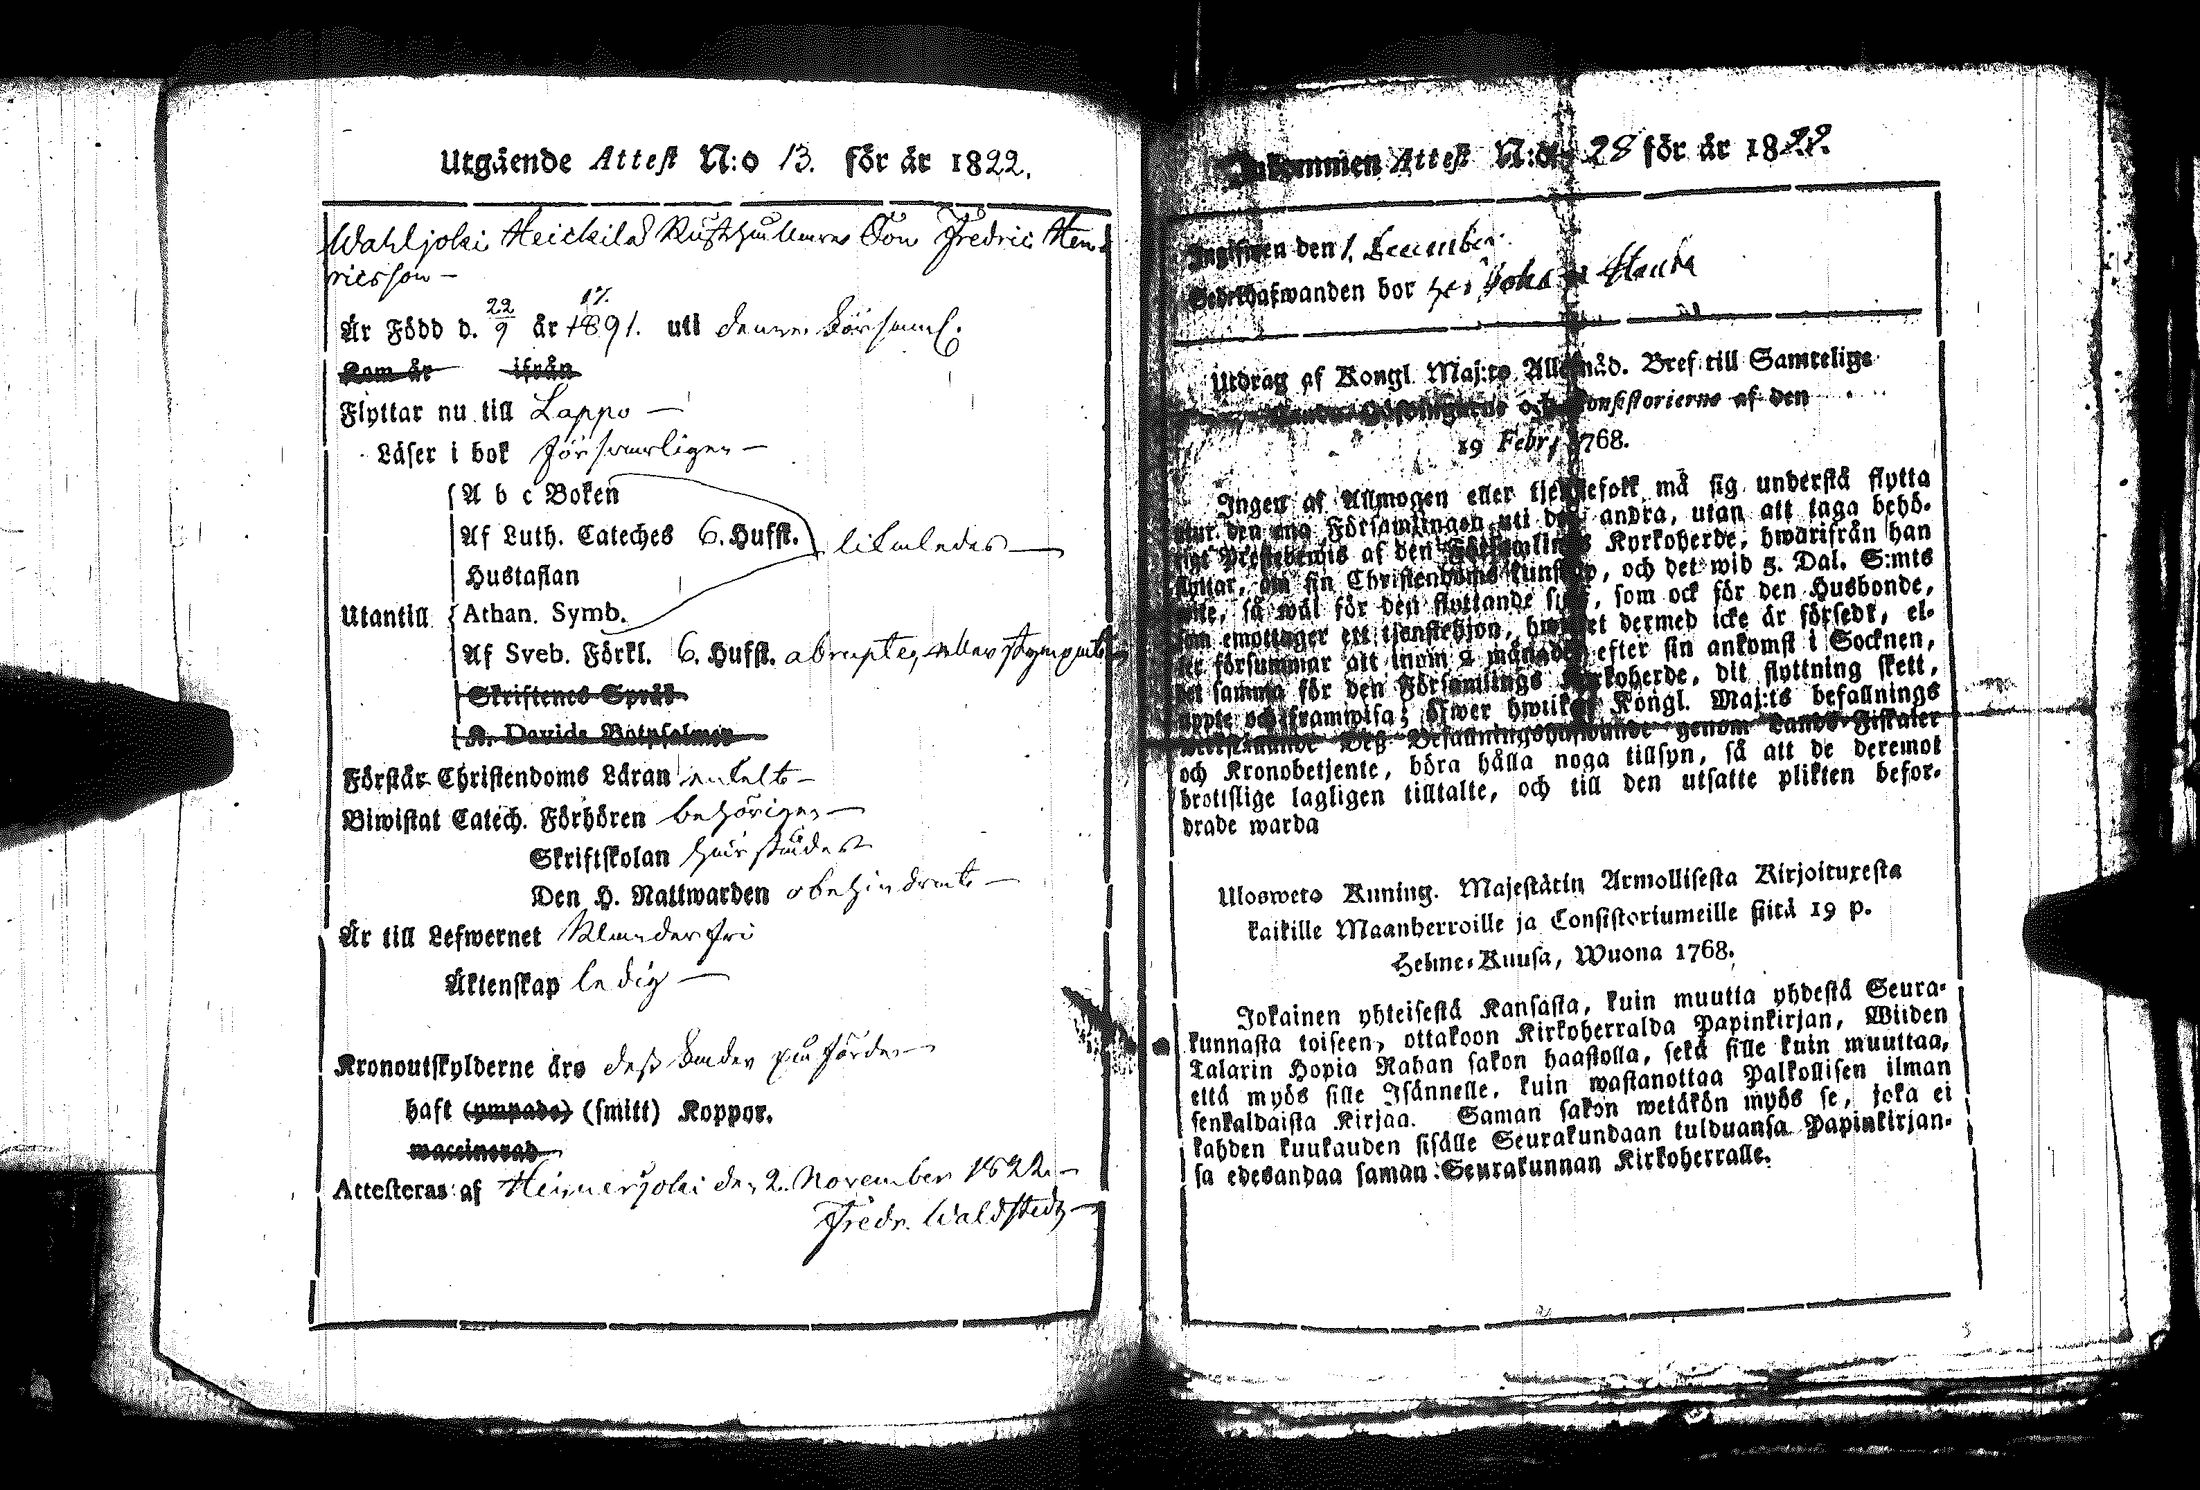 Utgående Attest N:o 13. för år 1822.
Wahljoki Heickilä Rusthållares Son Fredric Hen-
ricsson —
Är Född d. 22/9 år 1891. 17. uti denna Församl.
Kom år ifrån
Flyttar nu till Lappo —
Läser i bok försvarligen —
A b c Boken
Af Luth. Cateches 6. Hufst. likaledes —
Hustaflan
Utantill Athan. Symb.
Af Sveb. Förkl. 6. Hufst. abrupte, eller
Skriftenes Språk
K. Davids Botpsalmer
Förstår Christendoms Läran enkelt —
Biwistat Catech. Förhören behörigen —
Skriftskolan
Den H. Nattwarden obehindradt —
Är till Lefwernet Klanderfri
Äktenskap ledig —
Kronoutskylderne äro
haft (ympade) (smitt) Koppor.
waccinerad
Attesteras af Heinjoki den 2. November 1822. —
Fredr. Waldstedt
Inkommen Attest N:o 28 för år 1822.
Ingifwen den 1. December
Sedelhafwanden bor
Utdrag af Kongl. Maj:ts Allernåd. Bref till Samtelige
Consistorierne af den
19 Febr. 1768.
Ingen af Allmogen eller tjenstefolk må sig understå flytta
utur den ena Församlingen uti den andra, utan att taga behö-
rigt Prestebewis af den Församlings Kyrkoherde, hwarifrån han
flyttar, om sin Christendoms kunskap, och det wid 5. Dal. S:mts
wite, så wäl för den flyttande sjelf, som ock för den Husbonde,
som emottager ett tjenstehjon, hwilket dermed icke är försedt, el-
ler försummar att inom 2 månader efter sin ankomst i Socknen,
det samma för den Församlings Kyrkoherde, dit flyttning skett,
uppte och framwisa; öfwer hwilket Kongl. Maj:ts befallnings
genom Lands-Fiskaler
och Kronobetjente, böra hålla noga tillsyn, så att de deremot
brottslige lagligen tilltalte, och till den utsatte plikten befor-
drade warda
Ulosweto Kuning. Majestätin Armollisesta Kirjoituxesta
kaikille Maanherroille ja Consistoriumeille siitä 19 p.
Helme-Kuusa, Wuona 1768.
Jokainen yhteisestä Kansasta, kuin muutta yhdestä Seura-
kunnasta toiseen, ottakoon Kirkoherralda Papinkirjan, Wiiden
Talarin Hopia Rahan sakon haastolla, sekä sille kuin muuttaa,
että myös sille Isännelle, kuin wastanottaa Palkollisen ilman
senkaldaista Kirjaa. Saman sakon wetäkön myös se, joka ei
kahden kuukauden sisälle Seurakundaan tulduansa Papinkirjan-
sa edesandaa saman Seurakunnan Kirkoherralle.